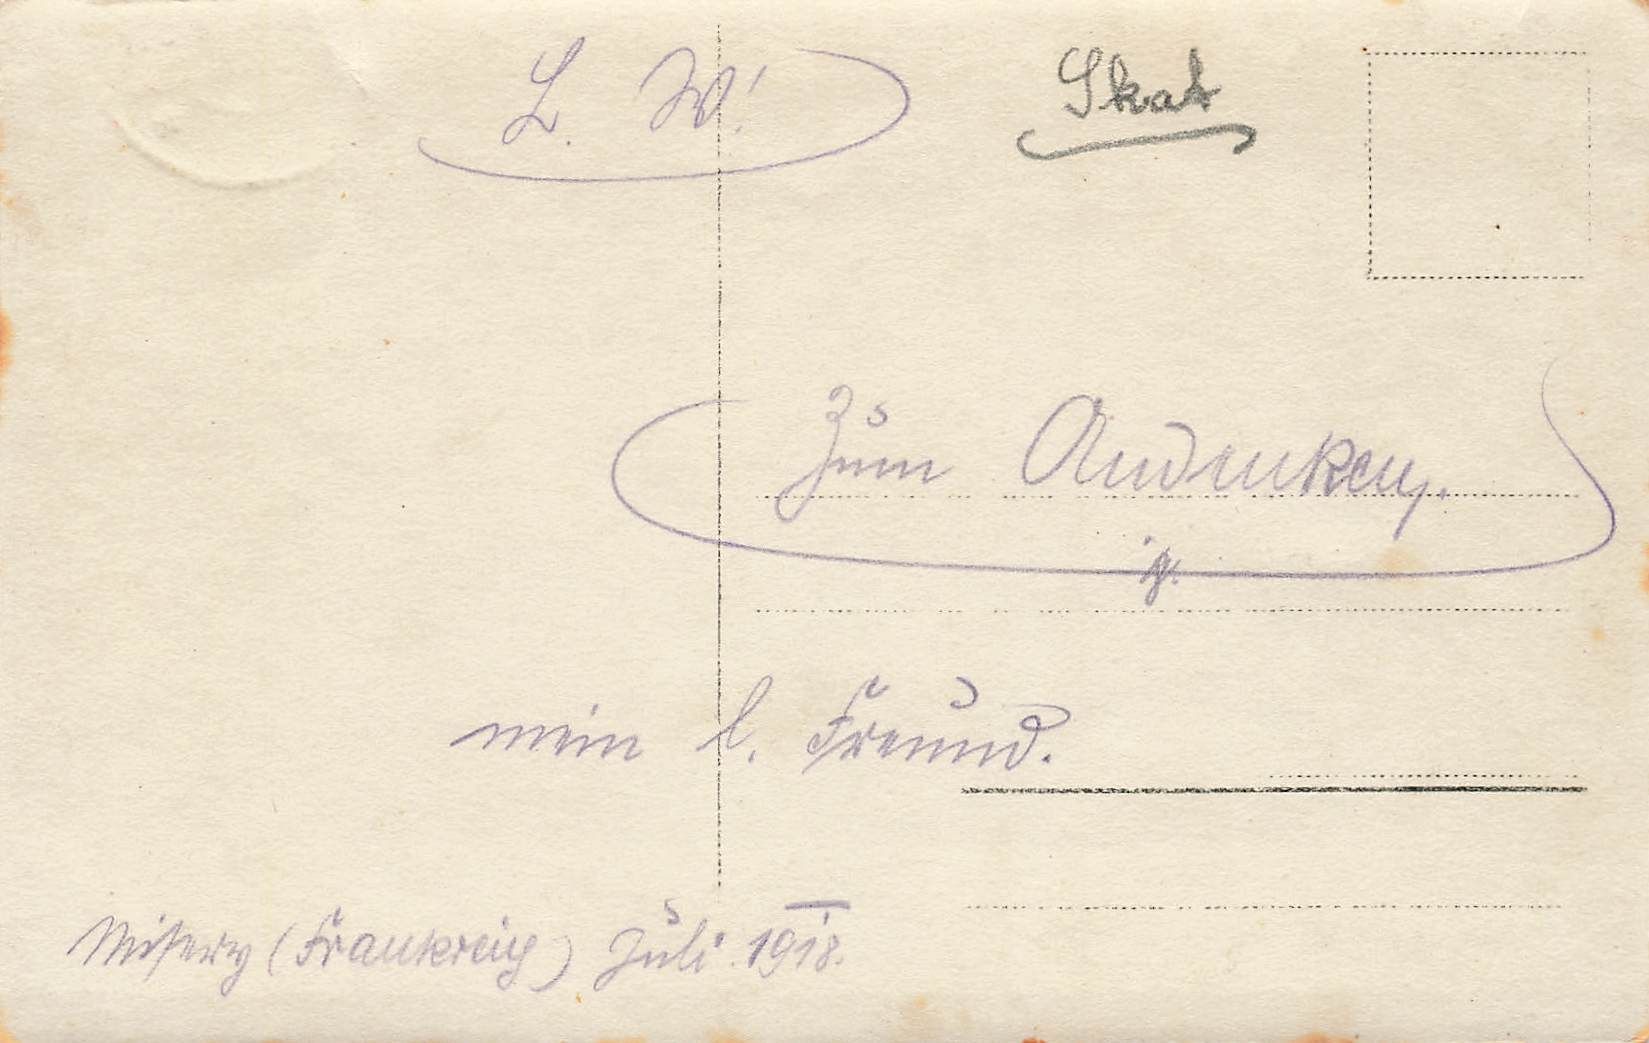 L. W!
Skat
Zum Andenken.
mein l. Freund.
Misery (Frankreich) Juli 1918.